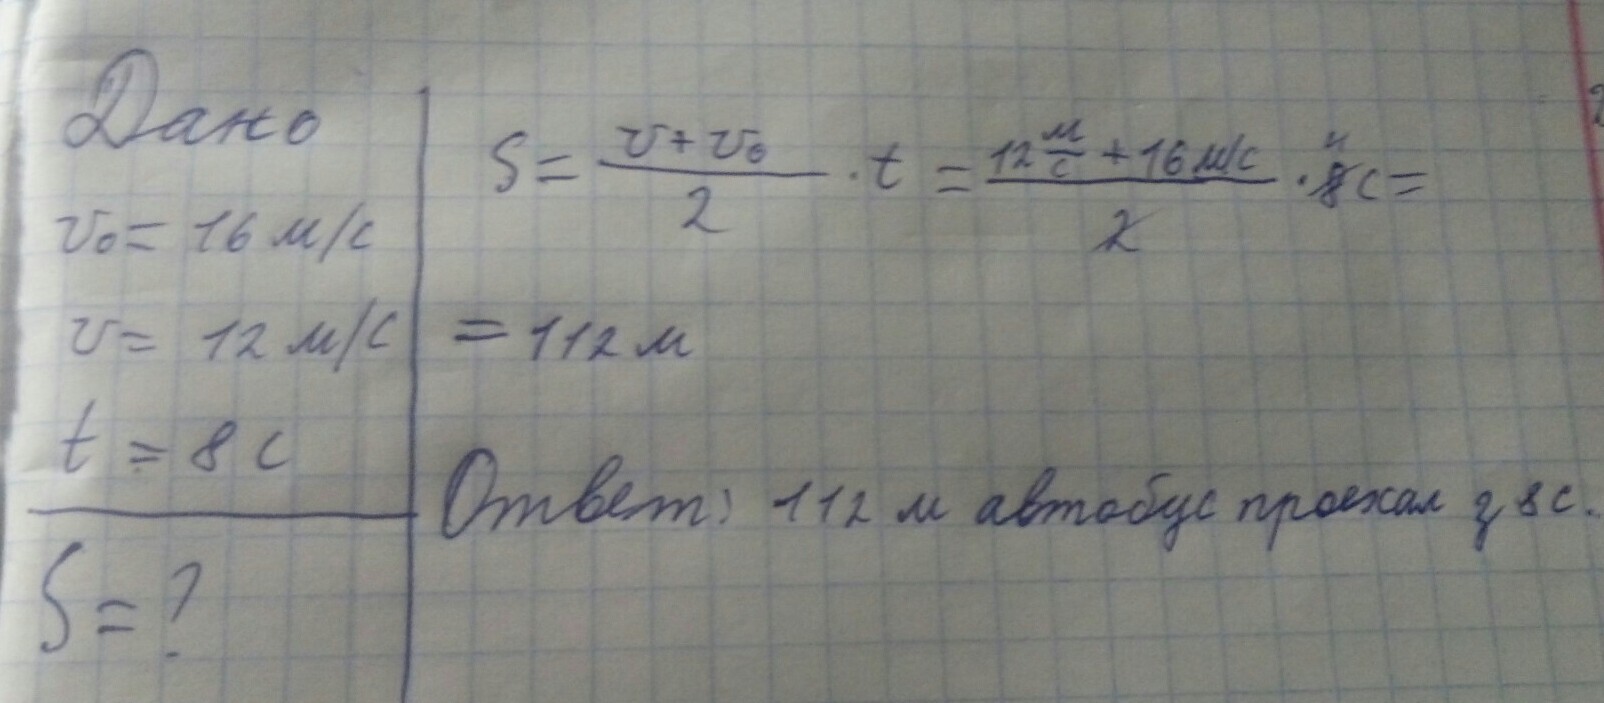 Дано
v₀ = 16 м/с
v = 12 м/с
t = 8 с
S = ?
S = (v + v₀)/2 · t = (12 м/с + 16 м/с)/2 · 8с =
4
= 112 м
Ответ: 112 м автобус проехал з 8с.